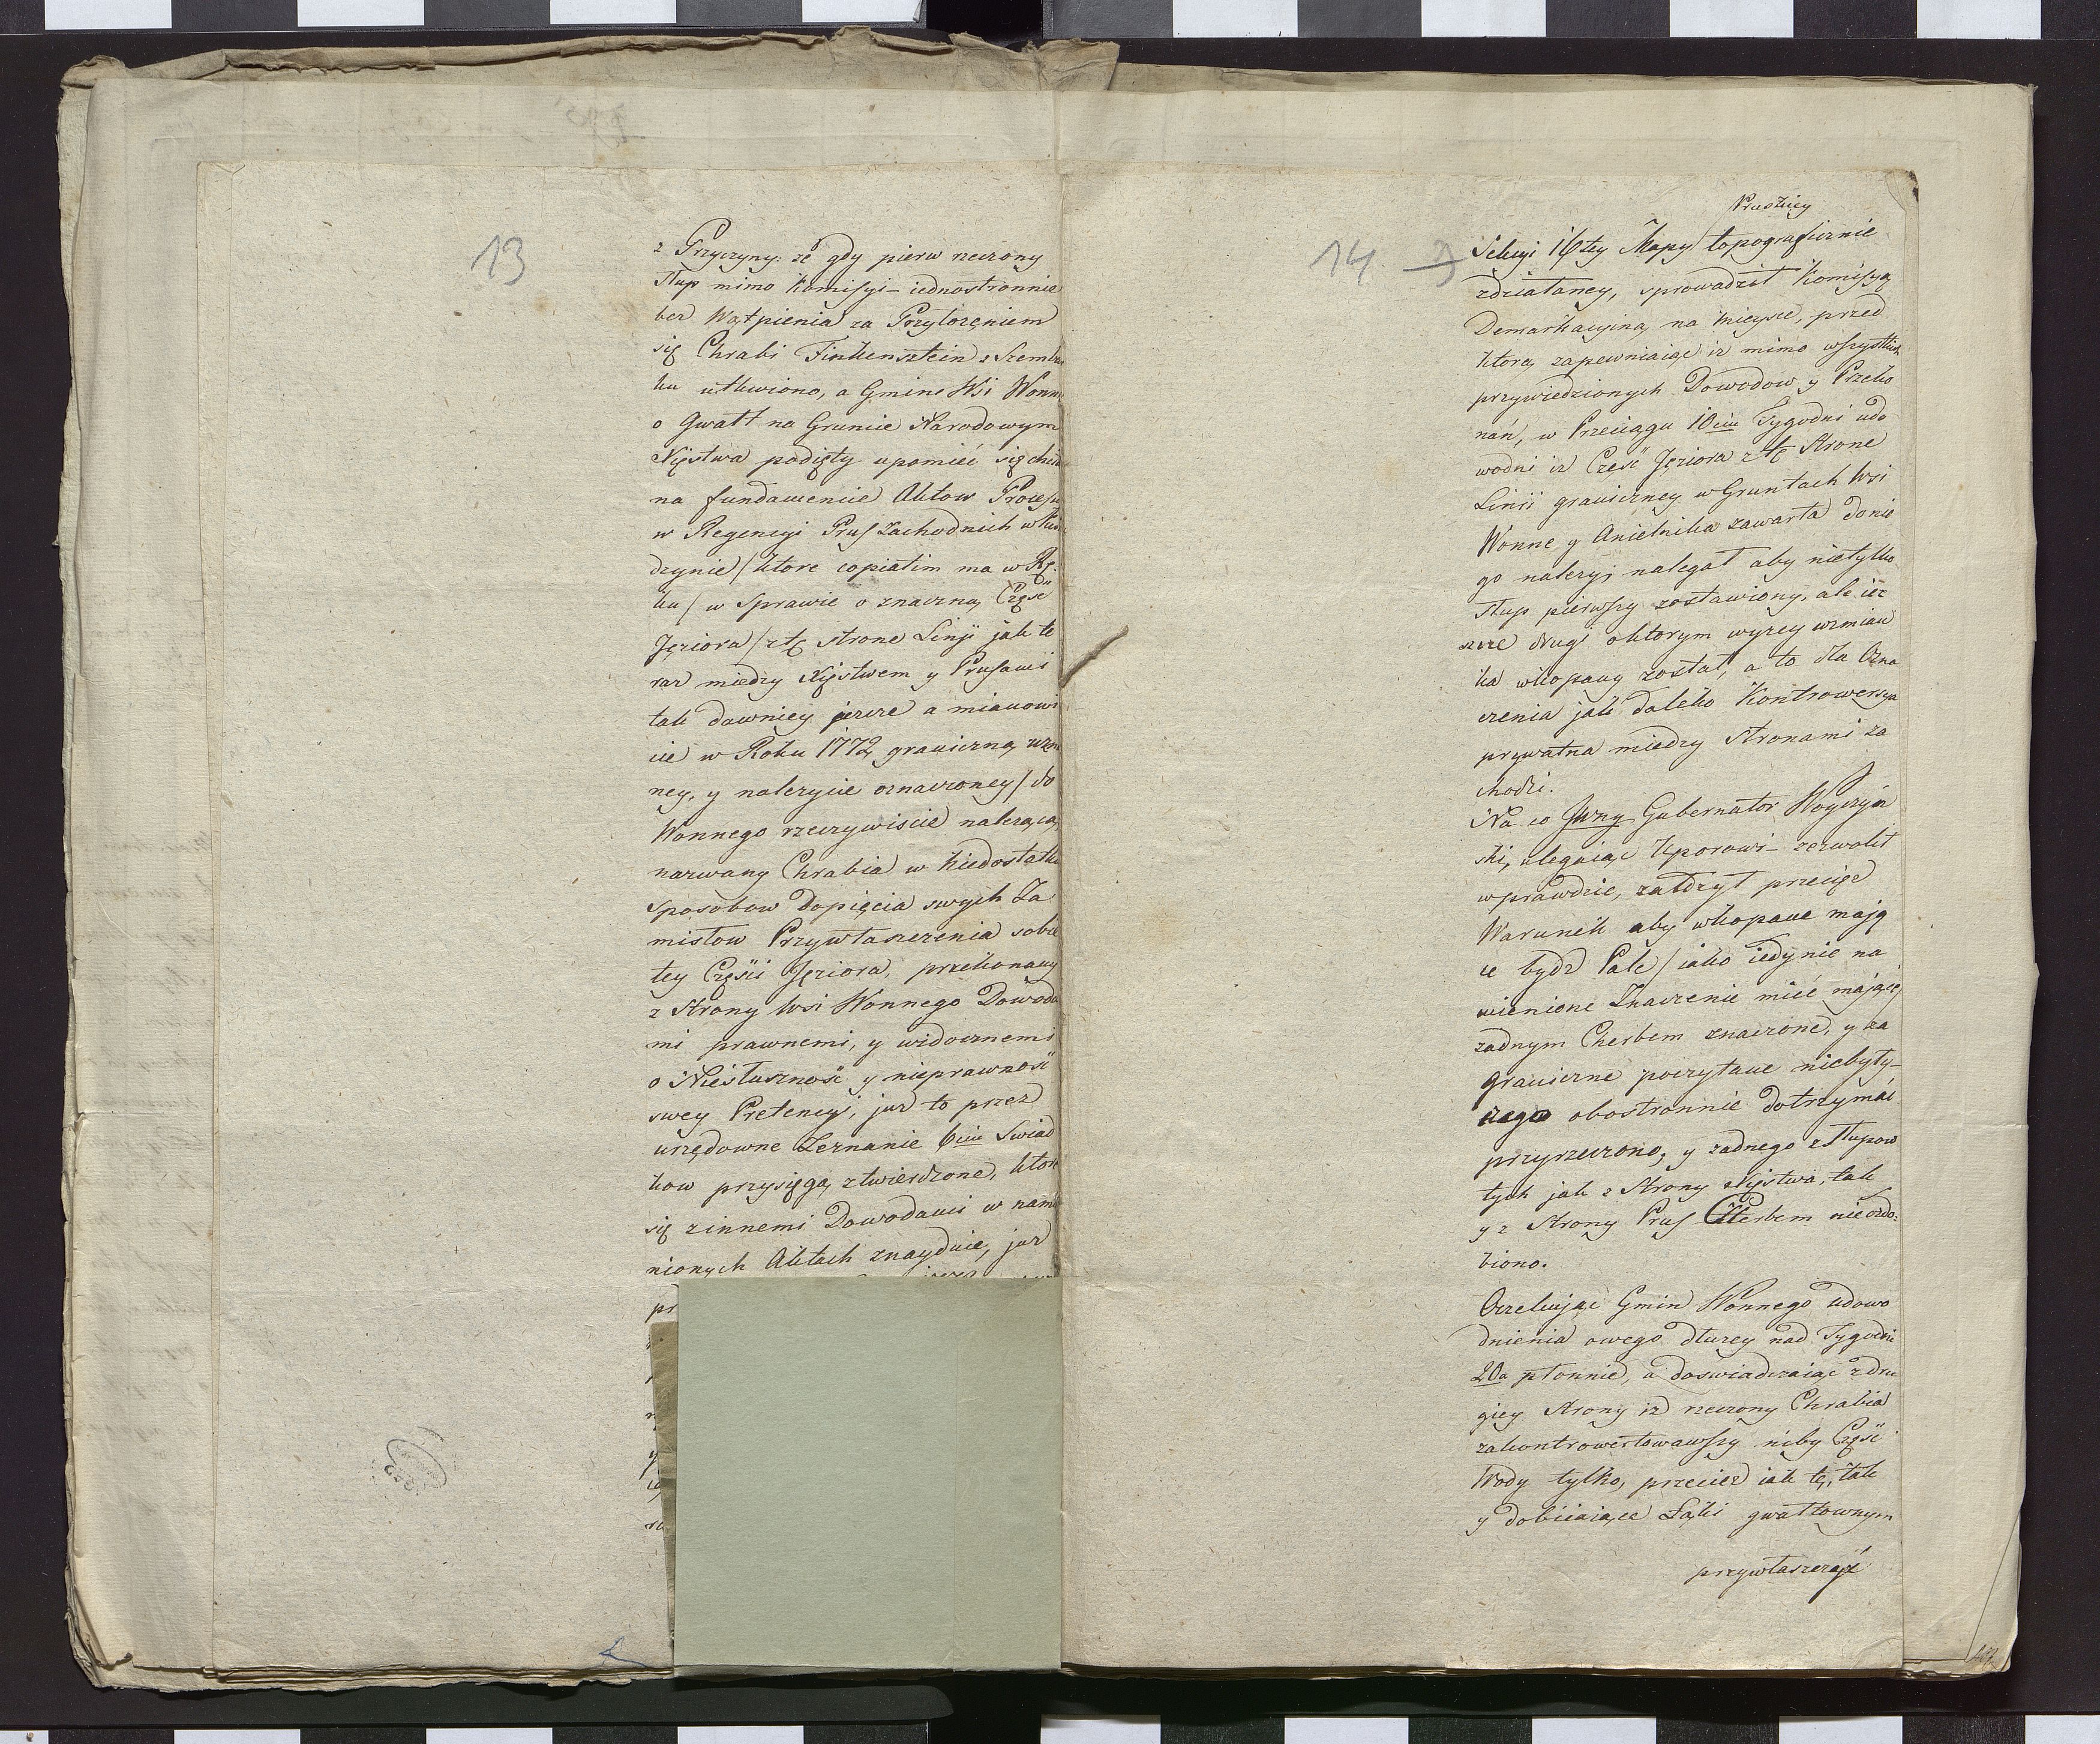 13
z Przyczyny: że gdy pierw rzeczony
słup mimo Komisyi iednostronnie
bez Wątpienia za Przyłożęniem
się Chrabi Finkensztein z Szemb
ku utkwiono, a Gmine Wsi Wonn
o Gwałt na Gruncie Narodowym
Xięstwa podięty upomieć się chc
na fundamencie Aktow Process
w Regencyi Prus Zachodnich w Kwi
dzynie / ktore copiatim ma w Rę
ku / w Sprawie o znaczną Część
Jęziora / z tę strone Linji jak te
raz miedzy Xięstwem y Prusami
tak dawniey jezcze a mianowi
cie w Roku 1772 graniczną
ney, y należycie oznaczoney / do
Wonnego rzeczywiscie należącą,
nazwany Chrabia w Niedostatku
sposobow Dopięcia swych Za
misłow Przywłaszczenia sobie
tey Części Jęziora, przekonany
z Strony Wsi Wonnego Dowoda
mi prawnemi, y widocznemi
o Niesłuszność y nieprawność
swey Pretencyi, juz to przez
urzędowne Zeznanie 6ciu Swiad
kow przysięgą ztwierdzone, ktore
się z innemi Dowodami w nam
nionych Aktach znayduie, juz
pr
14
Pruskiey
Sekcyi 16tey Mapy topograficznie
zdziałaney, sprowadził Komissyą
Demarkacyiną na mieysce, przed
ktorą zapewniaiąc iz mimo wszystkich
przywiedzionych Dowodow y Przeko
nań, w Przeciągu 10ciu Tygodni udo
wodni iz Część Jęziora z tę Strone
Linii graniczney w Gruntach Wsi
Wonne y Anielnika zawarta do nie
go należy; nalegał aby nietylko
słup pierwszy zostawiony, ale iez
szcze drugi oktorym wyzey wzmian
ka wkopany został, a to dla Ozna
czenia jak daleko Kontrowersya
prywatna miedzy stronami za
chodzi.
Na co Jwny Gubernator Woyczyń
ski, ulegaiąc Uporowi zezwolił
wprawdzie, załozył przecięz
Warunek aby wkopane mają
ce bydz Pale / iako iedynie na
mienione Znaczenie mieć mające,
zadnym Cherbem znaczone, y za
graniczne poczytane niebyły
czego obostronnie dotrzymać
przyrzeczono, y zadnego z słupow
tych jak z Strony Xięstwa, tak
y z Strony Prus Cherbem nie ozdo:
biono.
Oczekując Gmin Wonnego udowo
dnienia owego dłuzey nad Tygodnie
20a płonnie, a doswiadczaiąc z dru
giey Strony iz rzeczony Chrabia
zakontrowertowawszy niby Część
Wody tylko, przeciez iak tę, tak
y dobiiaiące Łąki gwałtownym
przywłaszczajż